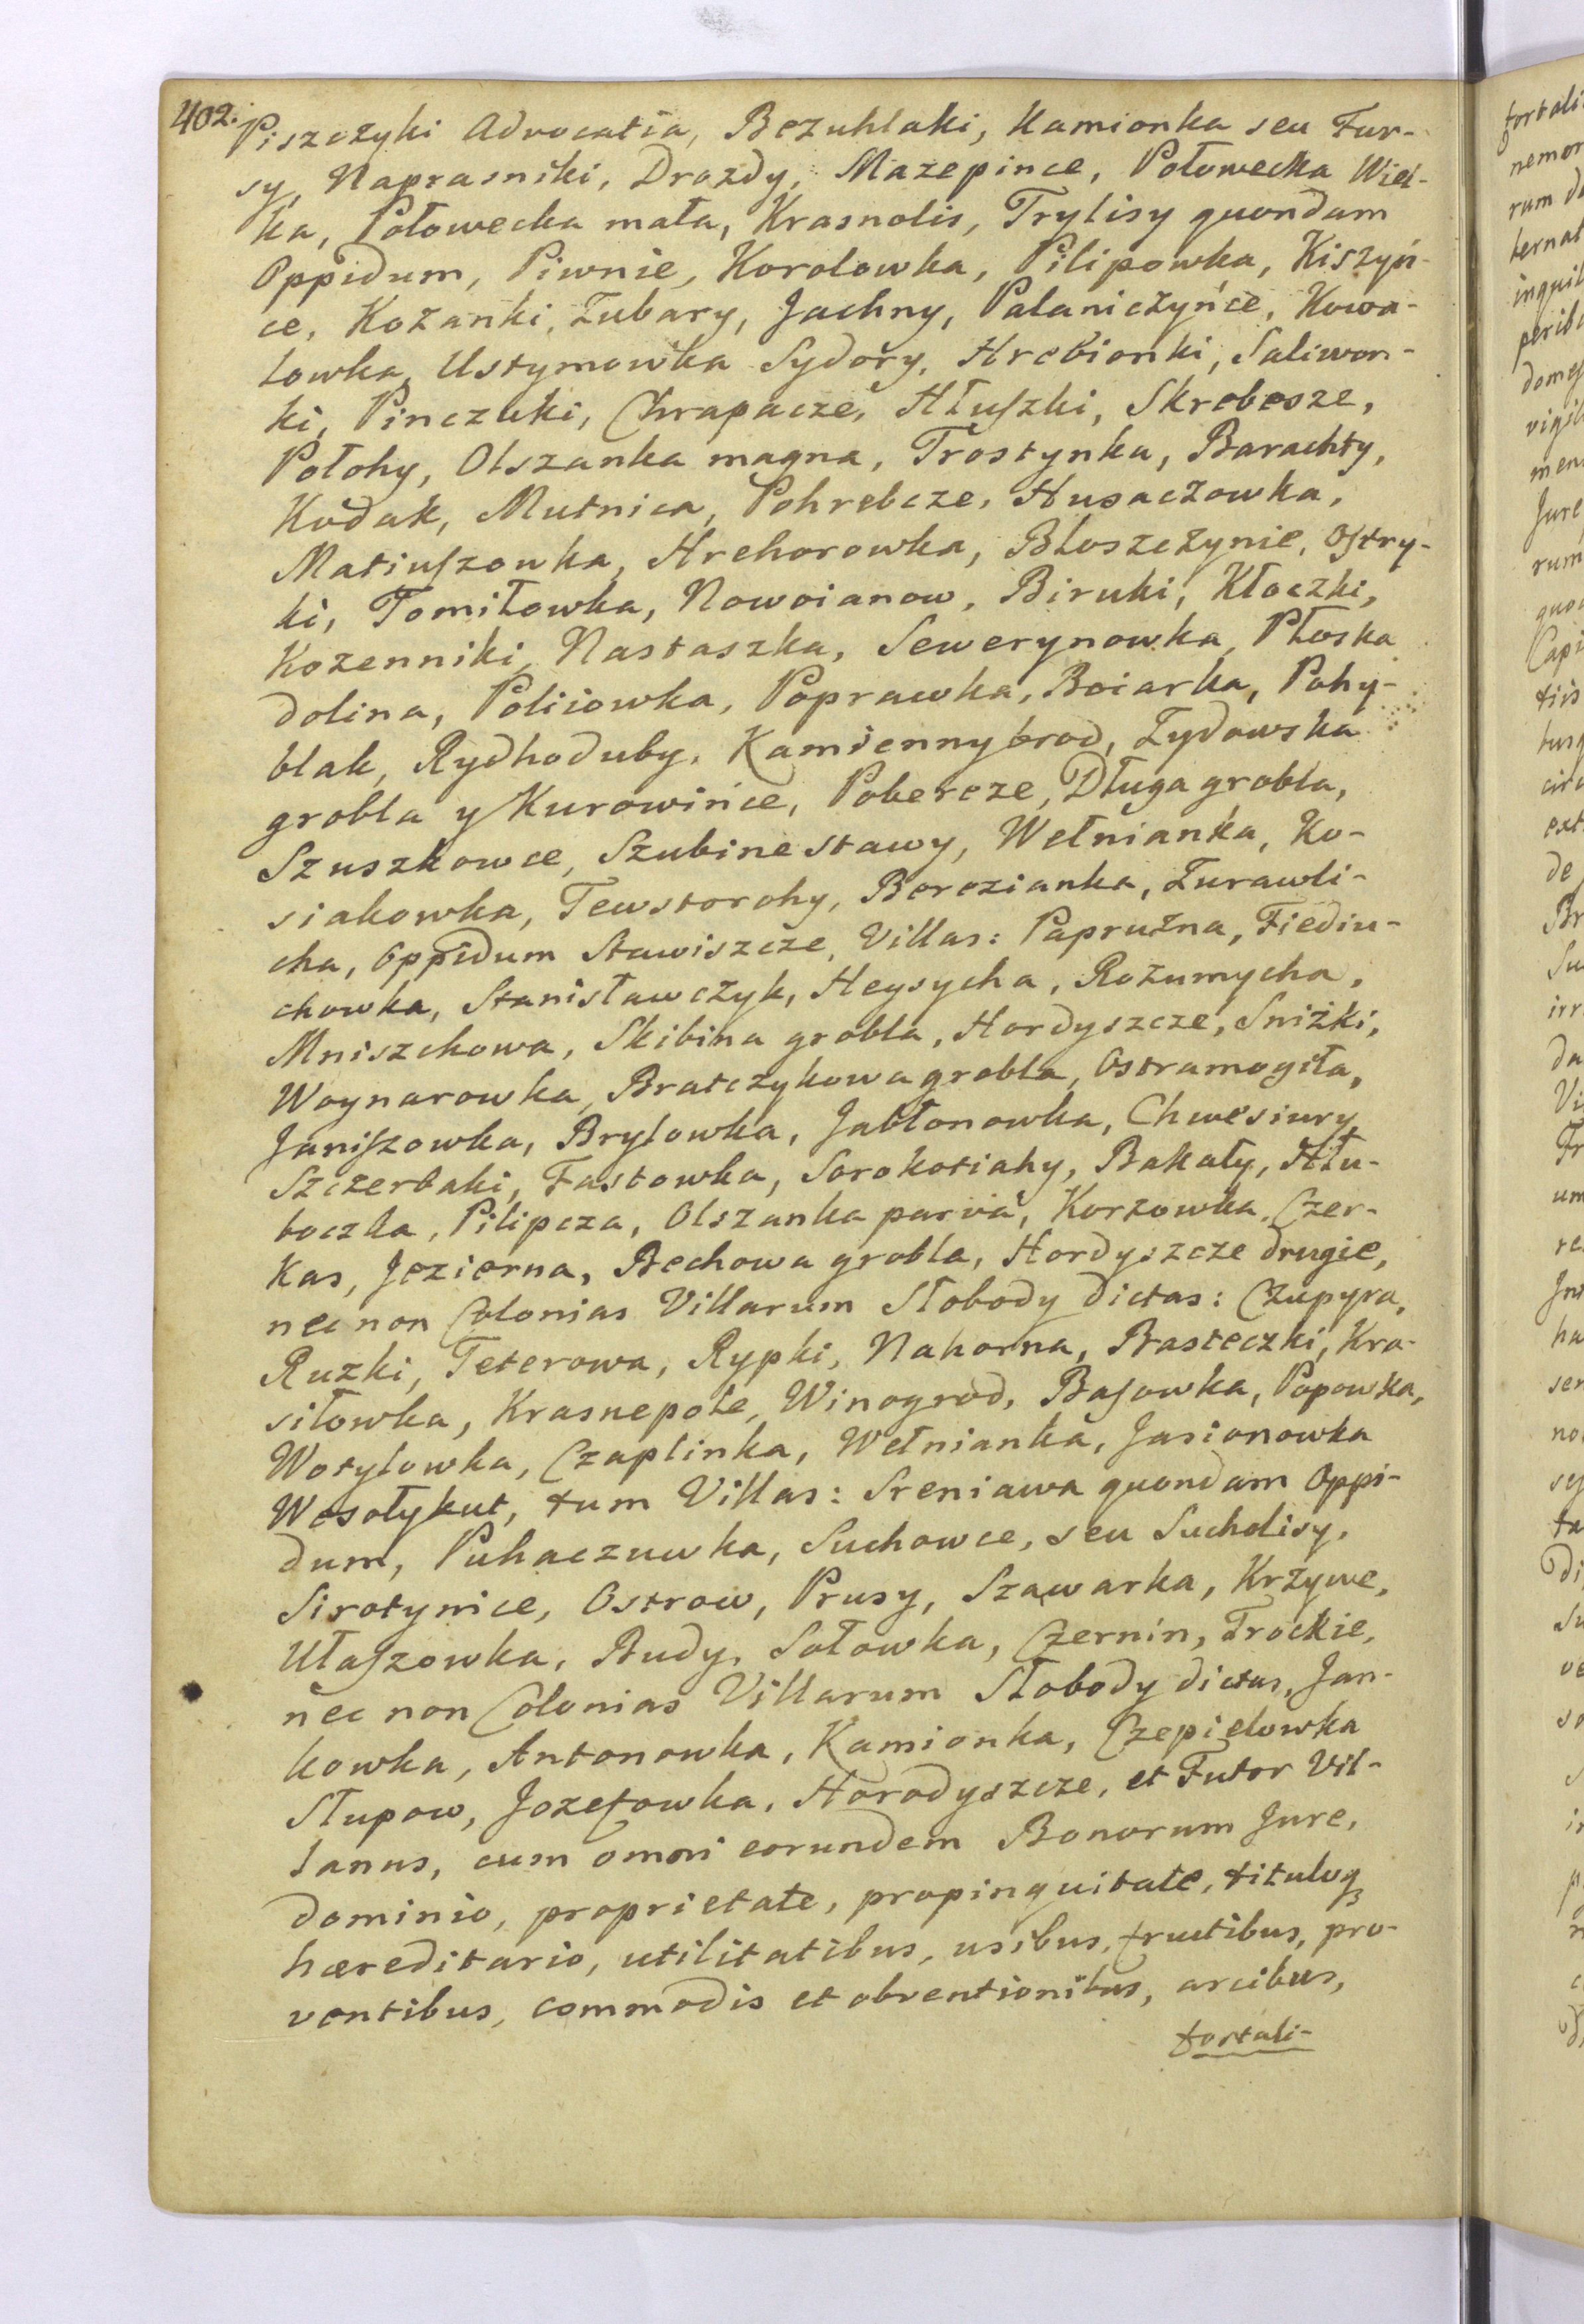 402.
Piszczyki Advocatia, Bezuhlaki, Kamionka seu Fur-
sy, Naprasniki, Drozdy, Mazepince, Połowecka Wiel-
ka, Połowecka mała, Krasnolis, Trylisy quondam
Oppidum, Piwnie, Korolowka, Pilipowka, Kiszyń-
ce, Kozanki, Zubary, Jachny, Palaniczyńce, Kowa-
lowka, Ustymowka Sydory, Hrebionki, Saliwon-
ki, Pinczuki, Chrapacze, Hłuszki, Skrebesze,
Połohy, Olszanka magna, Trostynka, Barachty,
Kodak, Mutnica, Pohrebcze, Husaczowka,
Matiuszowka, Hrehorowka, Błoszczynie, Ostry-
ki, Tomiłowka, Nowoianow, Biruki, Kłoczki,
Kozenniki, Nastaszka, Sewerynowka, Płoska
dolina, Poliiowka, Poprawka, Boiarka, Pohy-
blak, Rydhoduby, Kamienny brod, Zydowska
grobla y Kurowińce, Pobercze, Długa grobla,
Szuszkowce, Szubine stawy, Wełnianka, Ko-
siakowka, Tewstorohy, Berezianka, Zurawli-
cha, Oppidum Stawiszcze, Villas: Papružna, Fiediu-
chowka, Stanisławczyk, Heysycha, Rozumycha,
Mniszchowa, Skibina grobla, Hordyszcze, Sniżki,
Woynarowka, Bratczykowa grobla, Ostramogiła,
Janiszowka, Brylowka, Jabłonowka, Chwesiury
Szczerbaki, Fastowka, Sorokotiahy, Bakały, Hłu-
boczka, Pilipcza, Olszanka parva, Korzowka, Czer-
kas, Jezierna, Bechowa grobla, Hordyszcze drugie,
nec non Colonias Villarum Słobody dictas: Czupyra,
Ruzki, Teterowa, Rypki, Nahorna, Basteczki, Kra-
siłowka, Krasnepole, Winogrod, Basowka, Popowka,
Wotylowka, Czaplinka, Wełnianka, Jasionowka
Wesołykut, tum Villas: Sieniawa quondam Oppi-
dum, Puhaczuwka, Suchowce, seu Sucholisy,
Sirotynice, Ostrow, Prusy, Szawarka, Krzywe,
Ułaszowka, Budy, Sołowka, Czernin, Trockie,
nec non Colonias Villarum Słobody dictas, Jan-
kowka, Antonowka, Kamionka, Czepielowka
Słupow, Jozefowka, Horodyszcze, et Futor Vil-
lanus, cum omni eorundem Bonorum Jure,
dominio, proprietate, propinquitate, tituloq₃
hæreditario, utilitatibus, usibus, fructibus, pro-
ventibus, commodis et obventionibus, arcibus,
fortali-